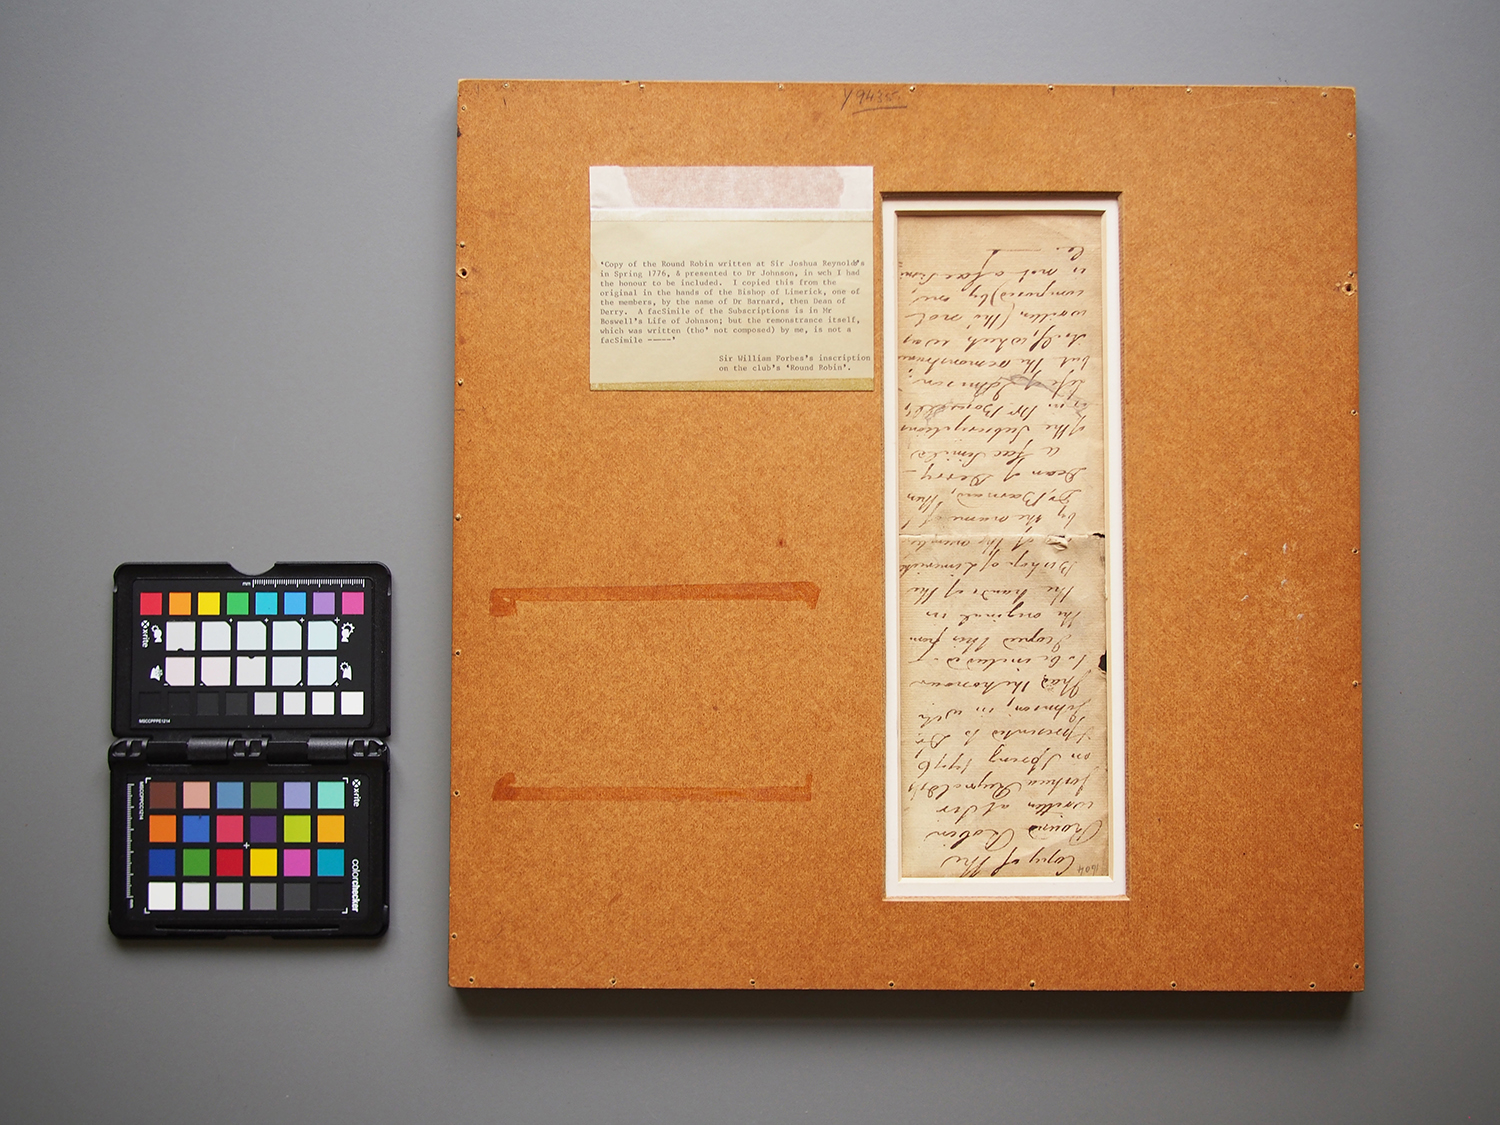 Y9435
'Copy of the Round Robin written at Sir Joshua Reynold's
in Spring 1776, & presented to Dr Johnson, in wch I had
the honour to be included. I copied this from the
original in the hands of the Bishop of Limerick, one of
the members, by the name of Dr Barnard, then Dean of
Derry. A facSimile of the Subscriptions is in Mr
Boswell's Life of Johnson; but the remonstrance itself,
which was written (tho' not composed) by me, is not a
facSimile -----'
Sir William Forbes's inscription
on the club's 'Round Robin'.
1604
Copy of the
Round Robin
written at Sir
Joshua Reynolds's
in Spring 1776
& presented to Dr
Johnson, in wch
I had the honour
to be included. I
copied this from
the original in
the hands of the
Bishop of Limerick
one of the members
by the name of
Dr Barnard, then
Dean of Derry —
a fac Simile
of the Subscriptions
is in Mr Boswell's
Life of Johnson;
but the remonstrance
itself, which was
written (tho' not
composed) by me,
is not a fac Simi
le —
mm
x-rite
MSCCPPPE1214
MSCCPPCC1214
x-rite
colorchecker
mm